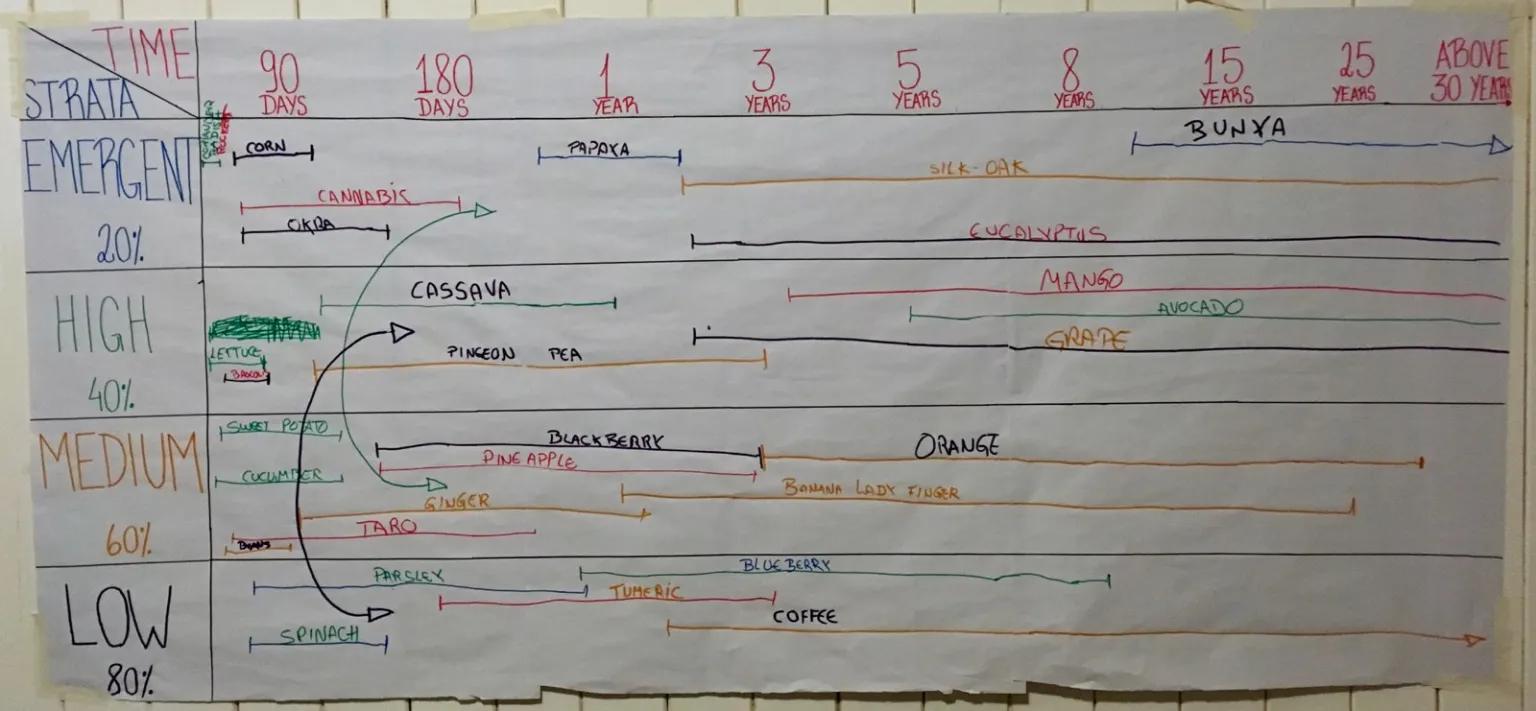 TIME
STRATA
90 DAYS
180 DAYS
1 YEAR
3 YEARS
5 YEARS
8 YEARS
15 YEARS
25 YEARS
ABOVE 30 YEARS
EMERGENT
20%
CORN
PAPAYA
BUNYA
SILK-OAK
CANNABIS
OKRA
EUCALYPTUS
HIGH
40%
CASSAVA
MANGO
AVOCADO
GRAPE
LETTUCE
PINGEON PEA
MEDIUM
60%
SWEET POTATO
BLACKBERRY
ORANGE
PINEAPPLE
CUCUMBER
BANANA LADY FINGER
GINGER
TARO
LOW
80%
PARSLEY
BLUEBERRY
TUMERIC
COFFEE
SPINACH